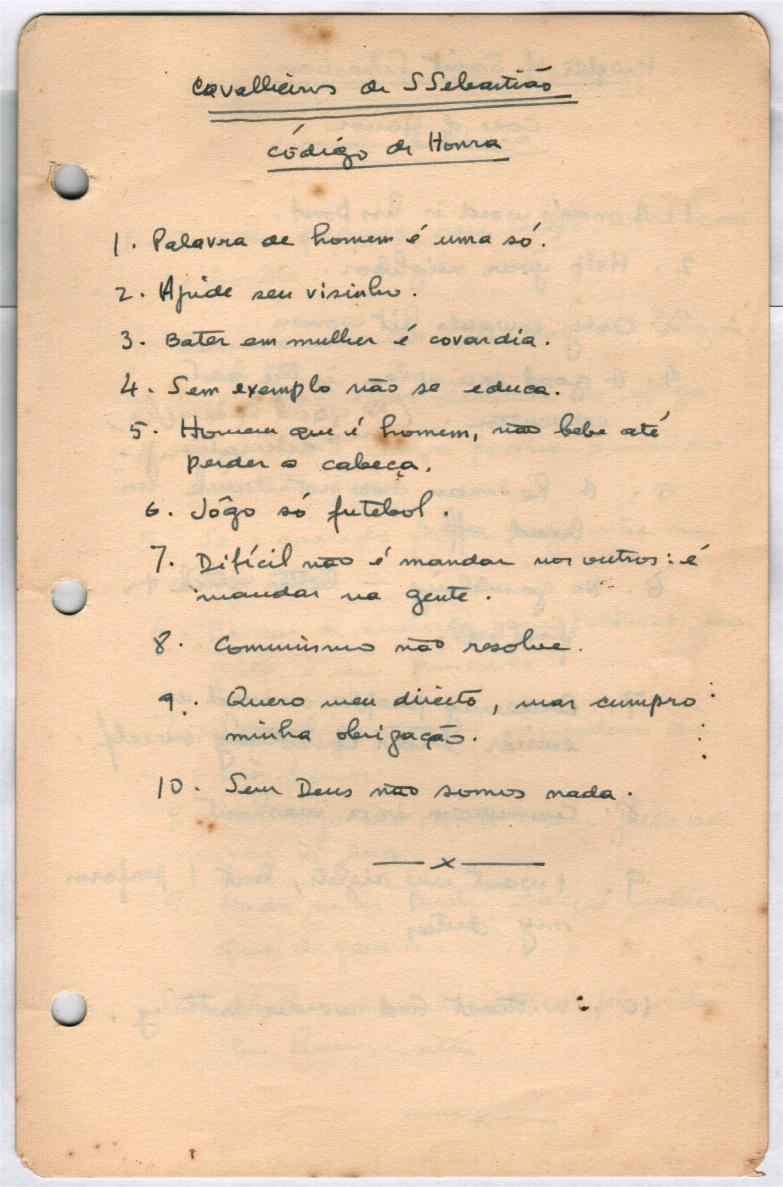 Cavalheiros de S Sebastião
Código de Honra
1. Palavra de homem é uma só.
2. Ajude seu visinho.
3. Bater em mulher é covardia.
4. Sem exemplo não se educa.
5. Homem que é homem, não bebe até
perder a cabeça.
6. Jôgo só futebol.
7. Difícil não é mandar nos outros: é
mandar na gente.
8. Comunismo não resolve.
9. Quero meu direito, mas cumpro
minha obrigação.
10. Sem Deus não somos nada.
x